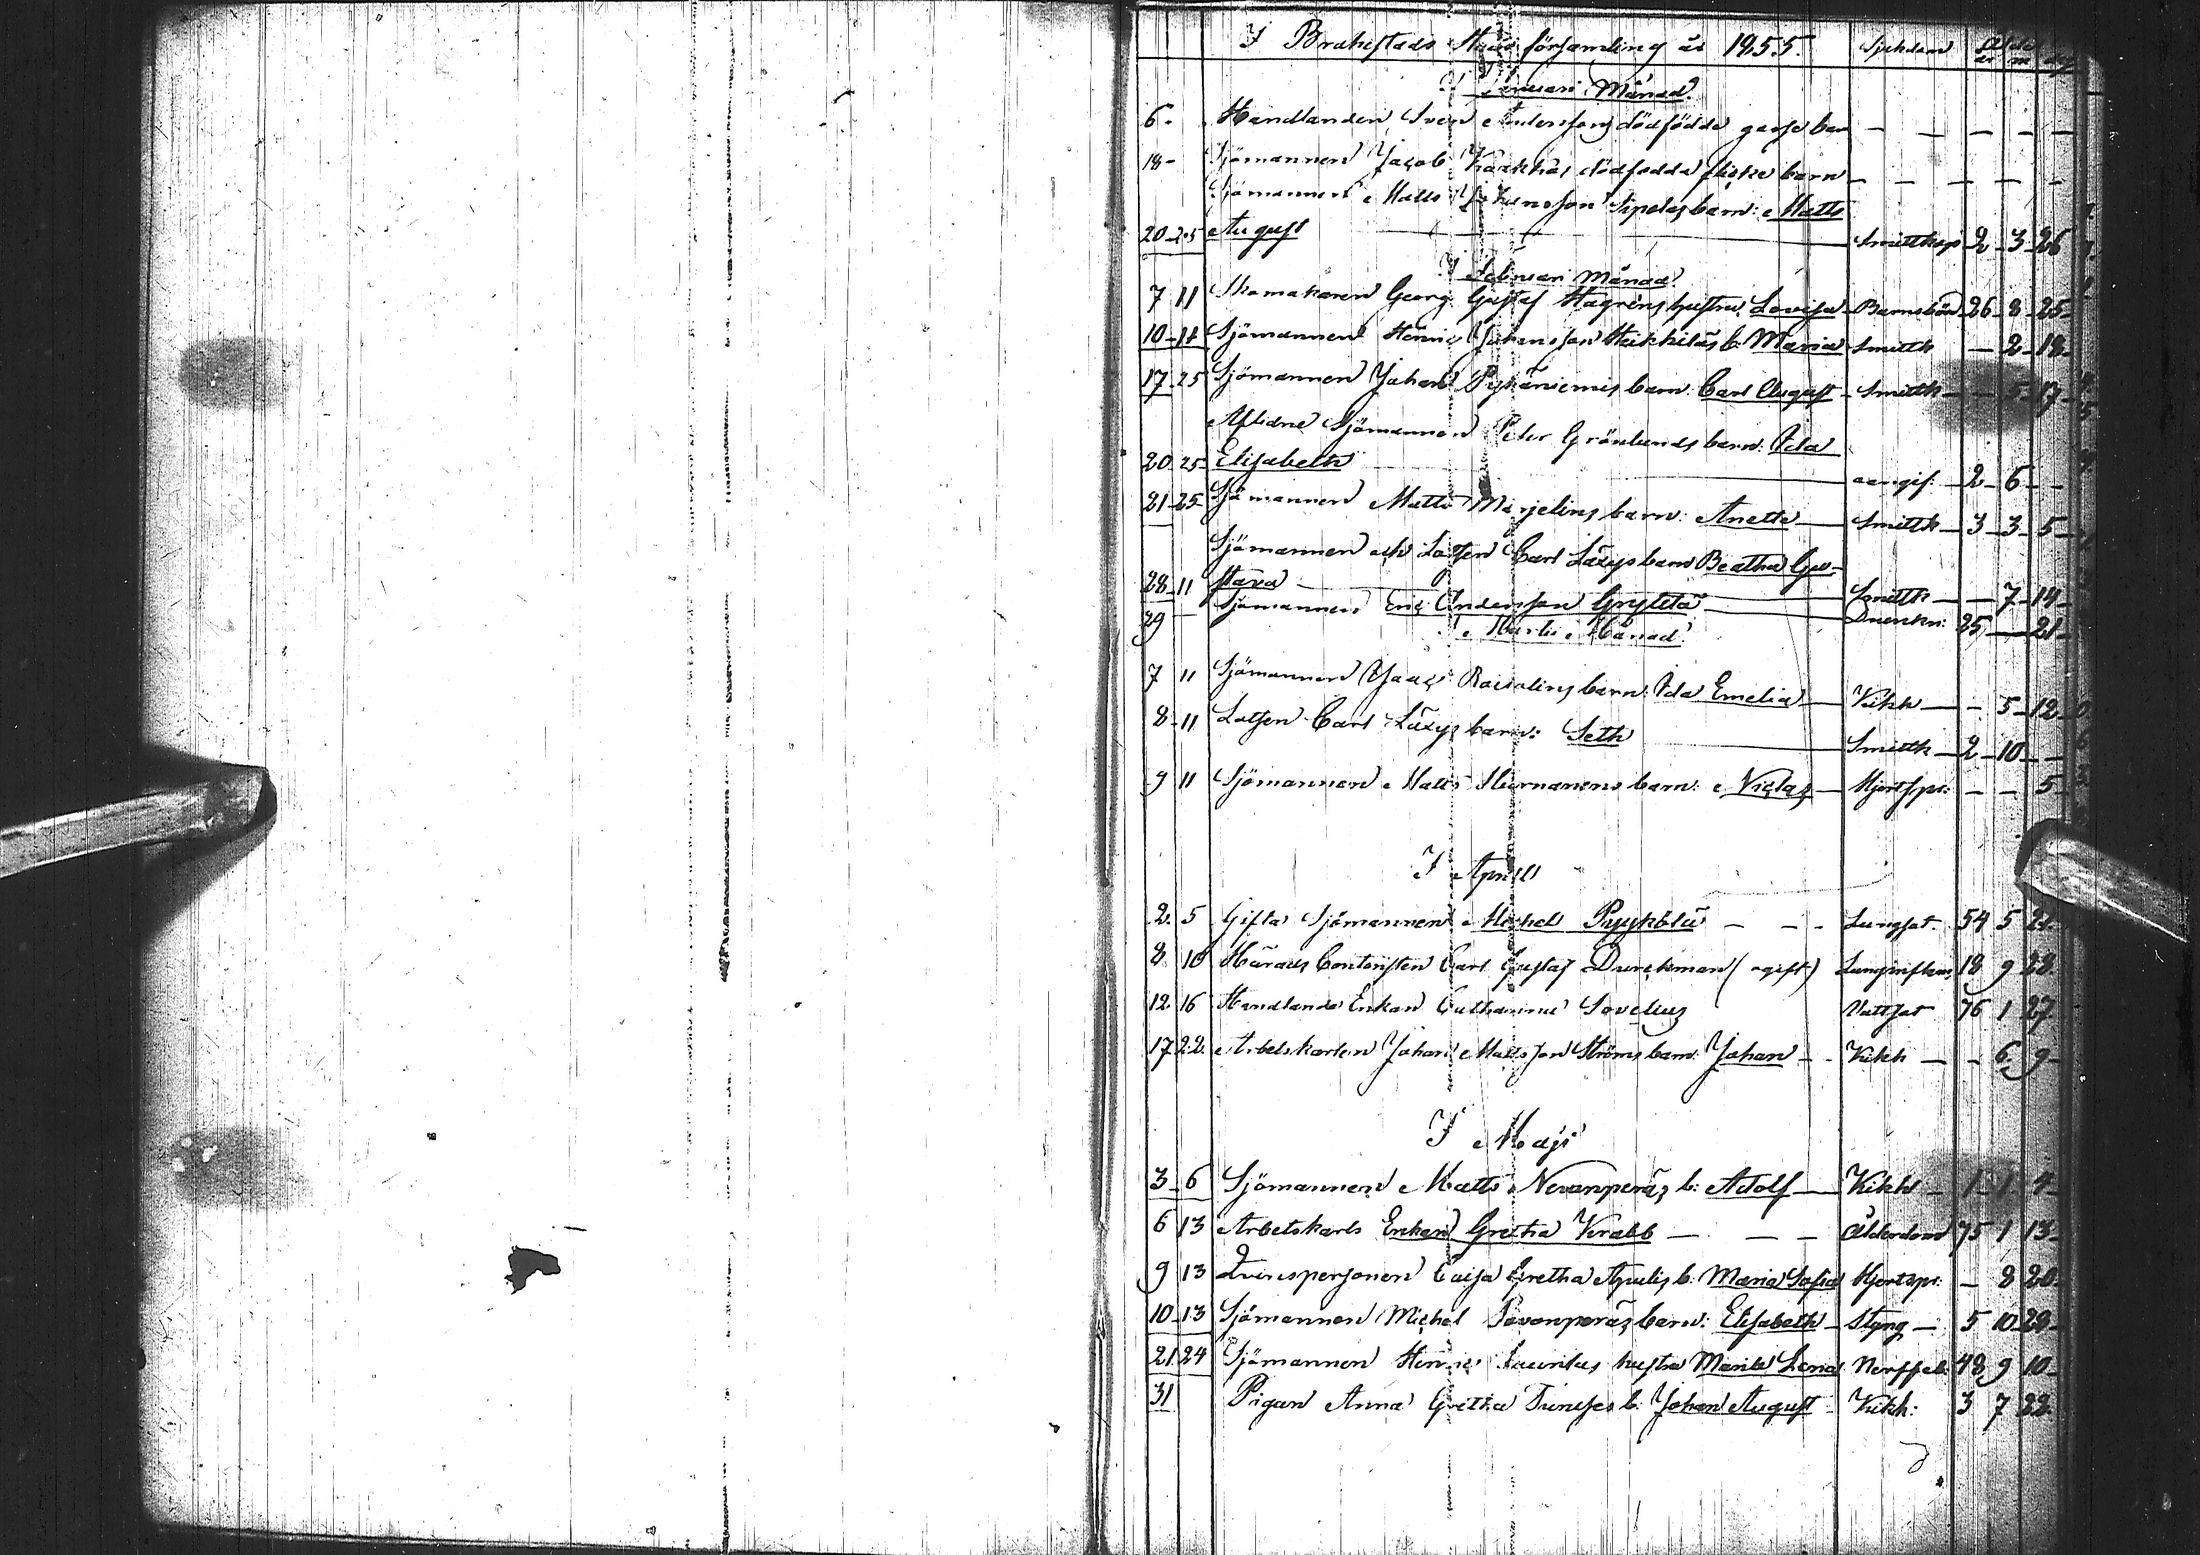 I Brahestads Stads församling år 1855. Sjukdom Ålder
år m dg
I Januari Månad.
6 - Handlanden Sven Anderssons dödfödda gosse barn — — — — —
18 - Sjömannen Jacob Kaakkos dödfödda flicke barn — — — — —
Sjömannen Matts Johansson Sipolas barn: Matts
20 - 25 August — Smittkop 2 - 3 - 26
I Februari Månad.
7 11 Skomakaren Georg Gustaf Hagréns hustru Lovisa Barnsbörd 26 - 8 - 25
10 - 11 Sjömannen Henric Johansson Heikkiläs b: Maria Smittk — 2 - 18
17 - 25 Sjömannen Johan Pyhäniemis barn: Carl August - Smittk — 5 - 17
Aflidne Sjömannen Peter Grönlunds barn: Ida
20 25 Elisabeth — 2 - 6 -
21 - 25 Sjömannen Matts Marjelins barn: Anette — Smittk — 3 - 3 - 5
Sjömannen och Lotsen Carl Läxys barn Beatha Gu-
28 - 11 stava — Smittk — 7 - 14
29 Sjömannen Eric Andersson Grytetä — Drunkn: 25 — 21
I Martii Månad.
7 11 Sjömannen Isaac barn: Ida Emelia — Kikh — - 5 - 12
8 - 11 Lotsen Carl Läxys barn: Seth — Smittk — 2 - 10 -
9 11 Sjömannen Matts barn: Niclas — Hjertspr: - - 5
I Aprill
2 5 Gifta Sjömannen Michel Pyykölä — - - Lungsot. 54 5 21
8 10 Härads Contoristen Carl Gustaf Durchman (ogift) 18 9 28
12 16 Handlande Enkan Catharina Sovelius Vattsot 76 1 27
17 22 Arbetskarlen Johan Matsson Ströms barn: Johan - - Kikh — - 6 9 -
I Maji
3 - 6 Sjömannen Matts Nevanperäs b: Adolf — Kikh - 1 - 1
6 13 Arbetskarls Enkan Gretha Krabb — — Ålderdom 75 1 13
9 13 Qvinspersonen Caisa Gretha b: Maria Sofia Hjertspr: — 8 20
10 - 13 Sjömannen Michel Savonperäs barn: Elisabeth - Styng — 5 10 29
21 24 Sjömannen Henric hustru Maria Lena Nerffeb: 48 9 10
31 Pigan Anna Gretha b: Johan August - Kikh: 3 7 22